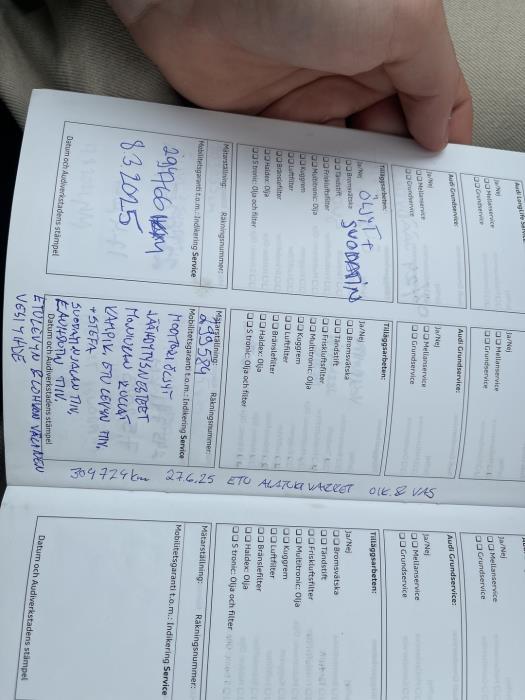 Audi Grundservice:
Ja/Nej
Mellanservice
Grundservice
Tilläggsarbeten:
Ja/Nej
Bromsvätska
Tändstift
Friskluftsfilter
Multitronic: Olja
Kuggrem
Luftfilter
Bränslefilter
Haldex: Olja
S tronic: Olja och filter
ÖLJYT +
SUODATIN
Mätarställning: Räkningsnummer:
Mobilitetsgaranti t.o.m.: Indikering Service
8.3.2025
Datum och Audiverkstadens stämpel
Ja/Nej
Mellanservice
Grundservice
Audi Grundservice:
Ja/Nej
Mellanservice
Grundservice
Tilläggsarbeten:
Ja/Nej
Bromsvätska
Tändstift
Friskluftsfilter
Multitronic: Olja
Kuggrem
Luftfilter
Bränslefilter
Haldex: Olja
S tronic: Olja och filter
Mätarställning: Räkningsnummer:
299584
Mobilitetsgaranti t.o.m.: Indikering Service
MOOTTORIÖLJYT
JÄÄHDYTYSNESTEET
MOOTTORIN
VAMPUA ETULEVYN TIIV.
SUODATINJALAN TIIV
Datum och Audiverkstadens stämpel
304724km 27.6.25 ETU ALATUKIVARRET OIK & VAS
Ja/Nej
Mellanservice
Grundservice
Audi Grundservice:
Ja/Nej
Mellanservice
Grundservice
Tilläggsarbeten:
Ja/Nej
Bromsvätska
Tändstift
Friskluftsfilter
Multitronic: Olja
Kuggrem
Luftfilter
Bränslefilter
Haldex: Olja
S tronic: Olja och filter
Mätarställning: Räkningsnummer:
Mobilitetsgaranti t.o.m.: Indikering Service
Datum och Audiverkstadens stämpel